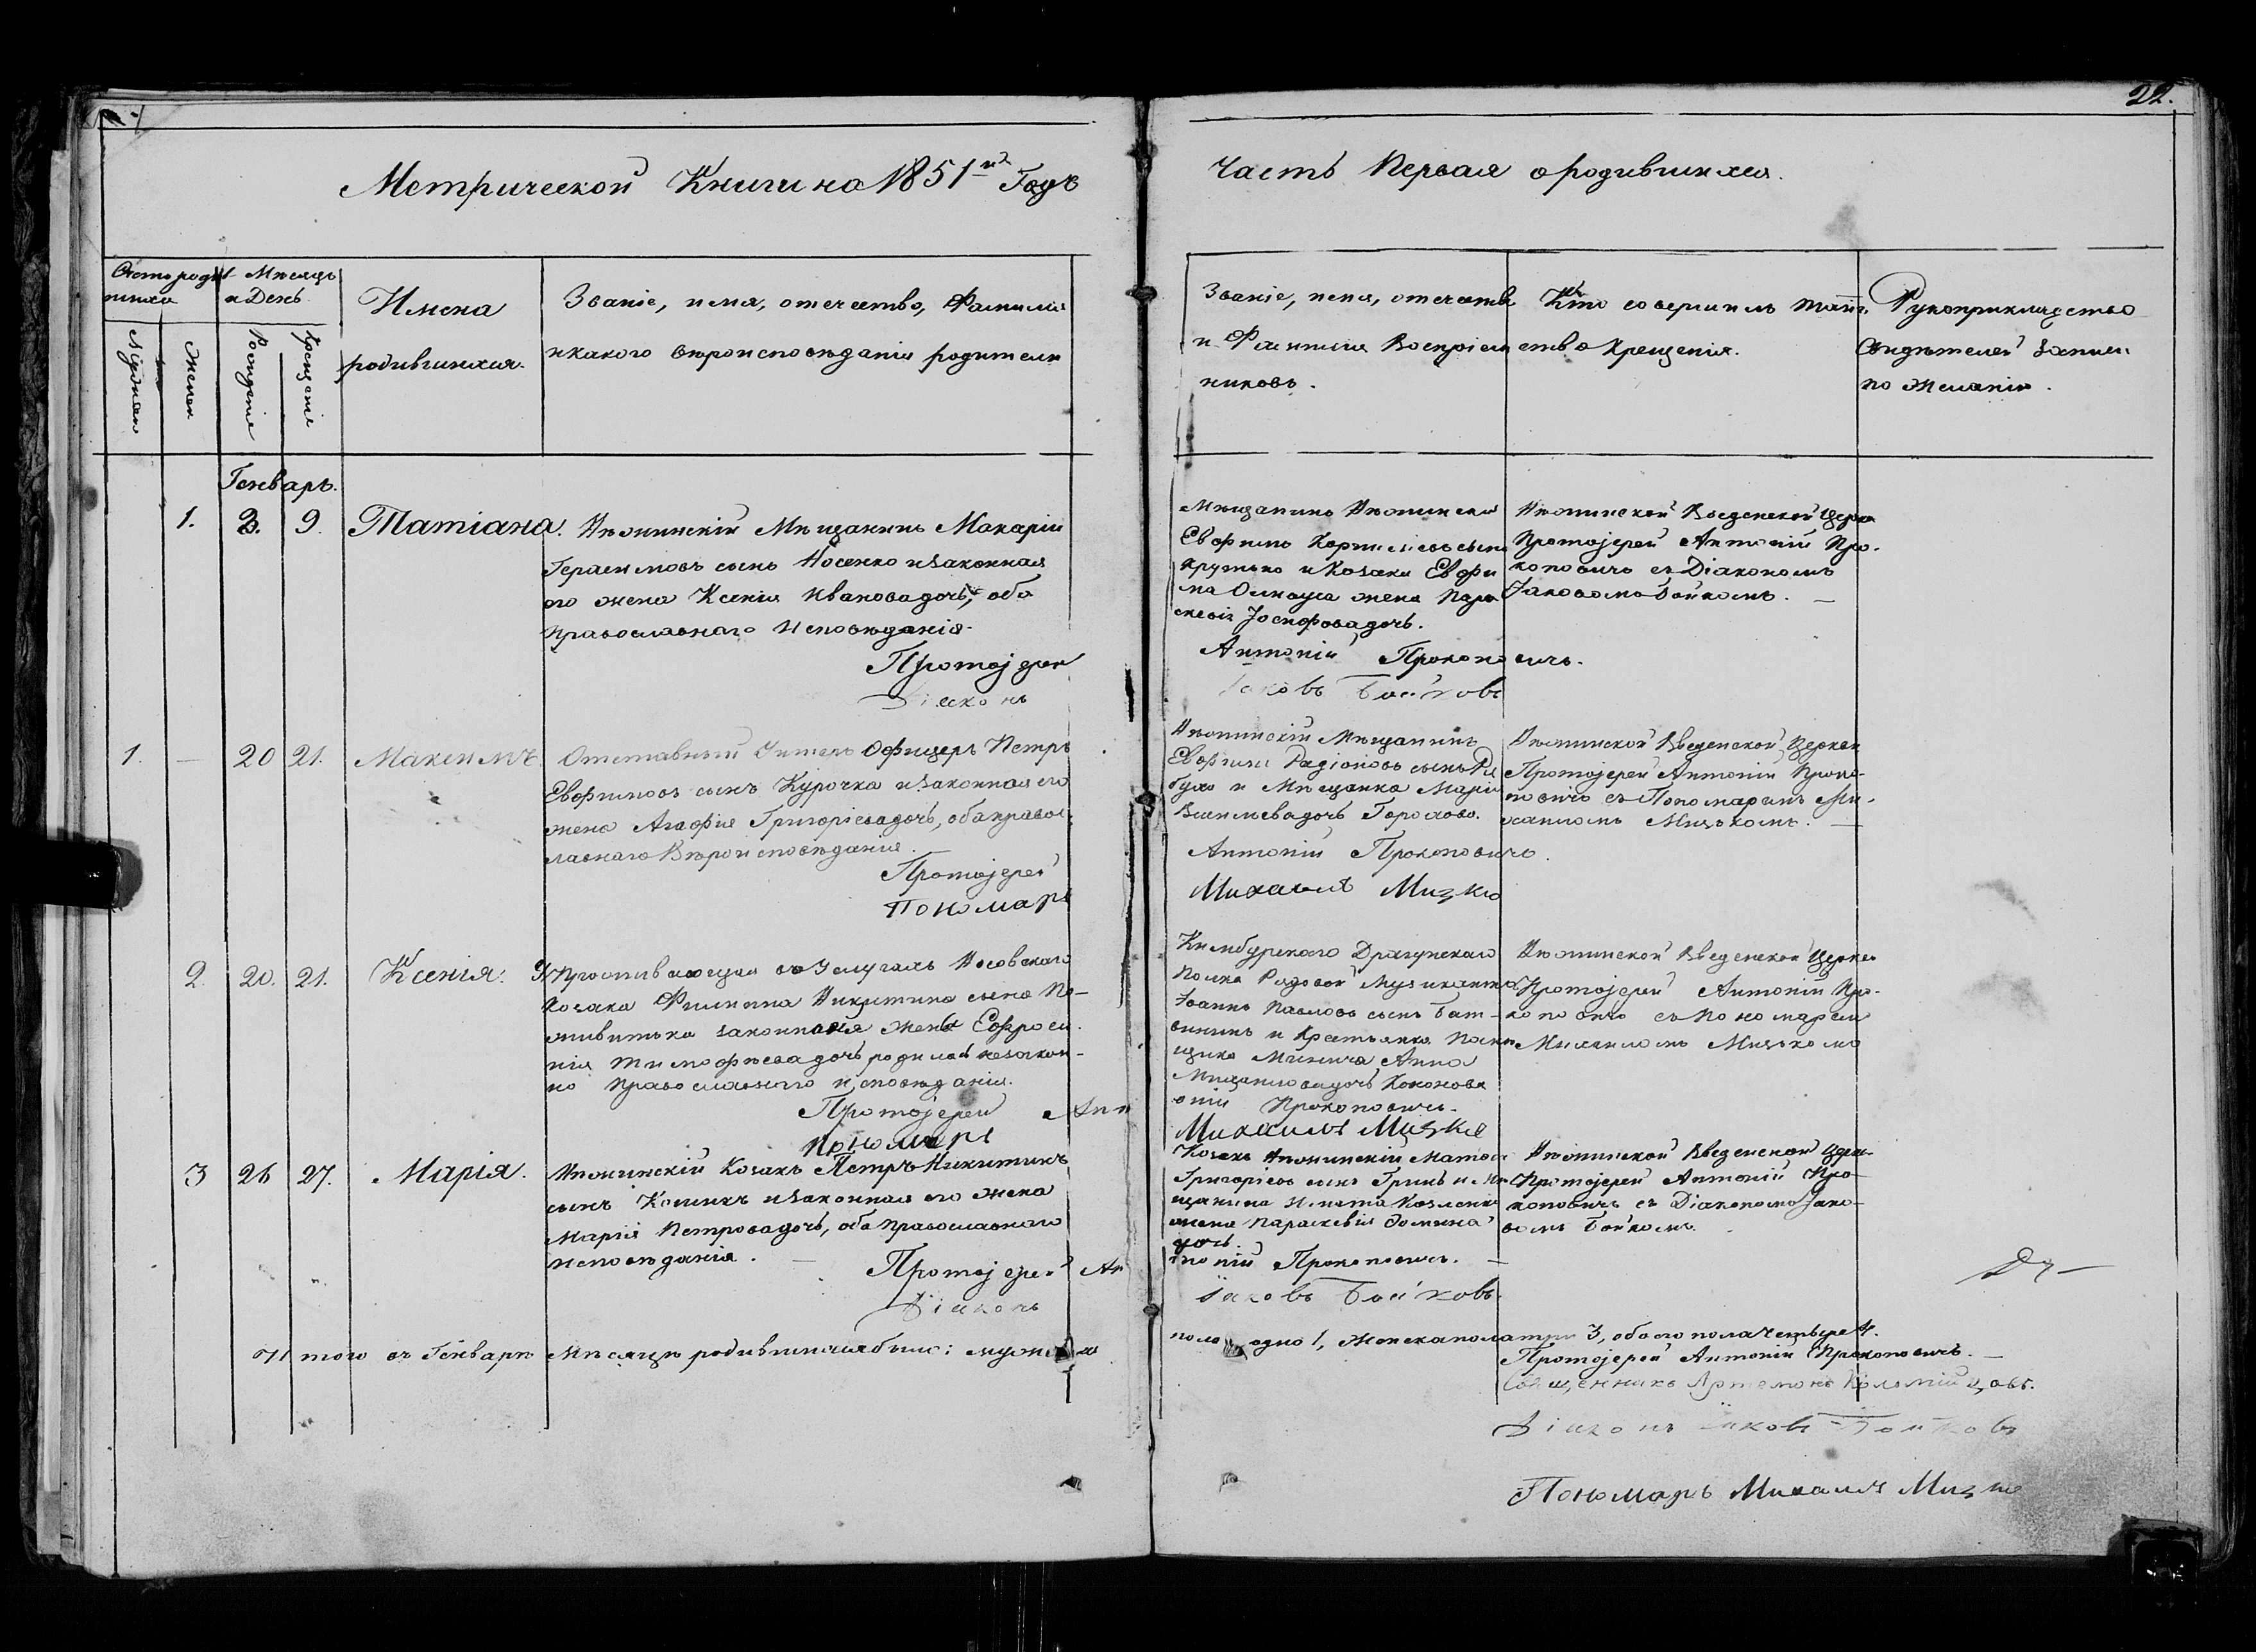 22.
Метрической Книги на 1851й Годъ
Часть Первая о родившихся.
Мѣсяцъ
и День
Мужеск
Женск
Рожденія
Крещенія
Имена
родившихся.
Званіе, имя, отечество, Фамилія
и какого вѣроисповѣданія родители
Званіе, имя, отечество
и Фамилія Воспріем
никовъ.
Кто совершилъ таин.
ство Крещенія.
Рукоприкладство
Свидѣтелей записи
по желанію.
Генварь.
1. 3. 9. Татіана.
Нѣжинскій Мѣщанинъ Макарій
Герасимовъ сынъ Носенко изаконная
его жена Ксенія Ивановадочь, оба
православнаго Исповѣданія.
Протоіерей
Діаконъ
Мѣщанинъ Нѣжинскій
Евфимъ сынъ
и Козака Евфи
ма жена Пара
скевія Іосифовадочь.
Антоній Прокоповичъ.
Іаковъ Бойковъ
Нѣжинской Введенской Церкви
Протоіерей Антоній Про-
коповичъ съ Діакономъ
Іаковомъ Бойкомъ. —
1. — 20 21. Максимъ
Отставный Унтеръ Офицеръ Петръ
Евфимовъ сынъ Курочка изаконная его
жена Агафія Григоріевадочь, оба правос-
лавнаго Вѣроисповѣданія.
Протоіерей
Пономарь
Нѣжинскій Мѣщанинъ
Евфимъ Радіоновъ сынъ Ря
буха и Мѣщанка Марія
Василіевадочь Горохова.
Антоній Прокоповичъ.
Михаилъ Мицко
Нѣжинской Введенской Церкви
Протоіерей Антоній Проко-
повичъ съ Пономаремъ Ми-
хаиломъ Мицькомъ. —
2. 20. 21. Ксенія.
Проживающая въ Услугахъ Носовскаго
Козака Филиппа Никитина сына По-
живитька законная жена Евфроси-
нія Тимофѣевадочь родила незакон-
но Православнаго исповѣданія.
Протоіерей Ант
Пономарь
Кинбурнскаго Драгунскаго
Полка Рядовой Музикантъ
Іоаннъ Павловъ сынъ Бат-
винин и Крестьянка
Анна
дочь Кононова
оній Прокоповичъ.
Михаилъ Мицко
Нѣжинской Введенской Церкви
Протоіерей Антоній Про-
коповичъ съ Пономаремъ
Михаиломъ Мицькомъ
3 26 27. Марія.
Нѣжинскій Козакъ Петръ Никитинъ
сынъ изаконная его жена
Марія Петровадочь, оба Православнаго
исповѣданія. —
Протоіерей Ан
Діаконъ
Козакъ Нѣжинскій Матвей
Григоріевъ сынъ Гринь и Мѣ
щанина Игната Козленка
жена Параскевія Фомина
дочь.
тоній Прокоповичъ. —
Іаковъ Бойковъ.
Нѣжинской Введенской Церк-
Протоіерей Антоній Про-
коповичъ съ Діакономъ Іако-
вомъ Бойкомъ.
И того въ Генварѣ Мѣсяцѣ родившихся было: мужеска
пола одно 1, Женска пола три 3, обоего пола четыре 4.
Протоіерей Антоній Прокоповичъ. —
Священникъ Артемонъ Коломійцовъ.
Діаконъ Іаковъ Бойковъ
Пономарь Михаилъ Мицко